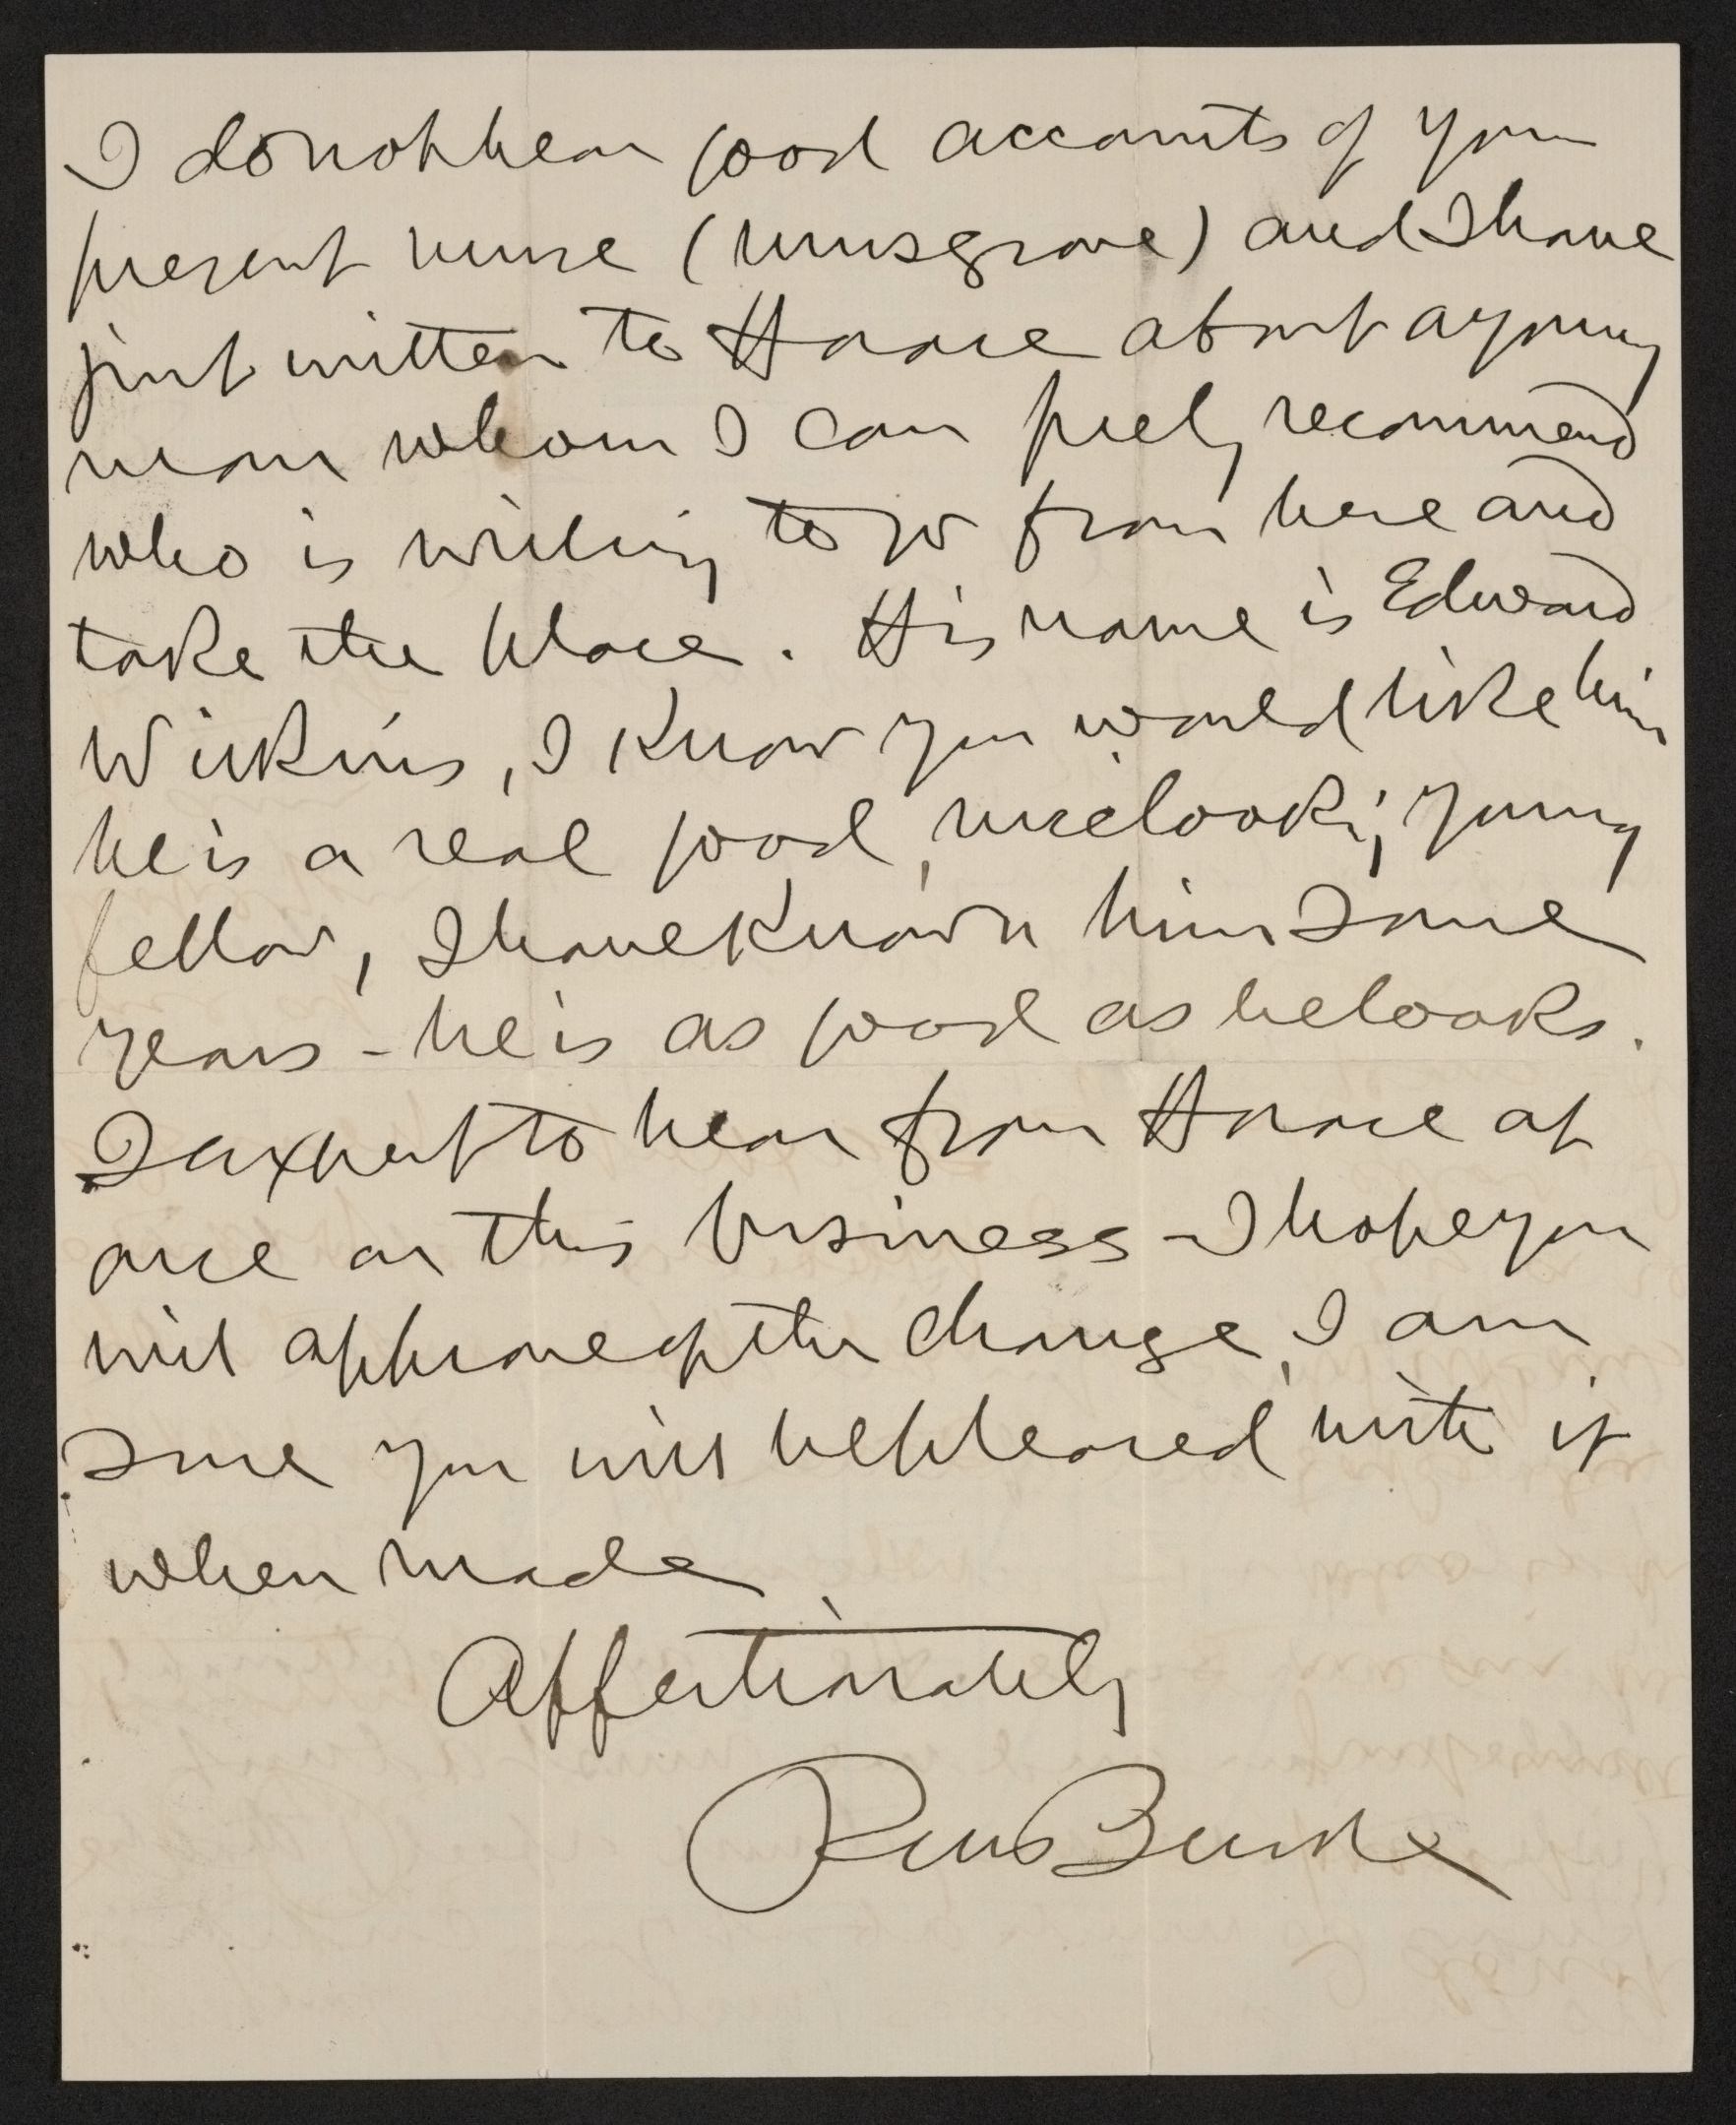 I do not hear good accounts of your
present nurse (Musgrove) and I have
just written to Horace about a young
man whom I can freely recommend
who is willing to go from here and
take the place. His name is Edward
Wilkins, I know you would like him
he is a real good, nice looking young
fellow, I have known him some
years - he is as good as he looks.
I expect to hear from Horace at
once on this business - I hope you
will approve of the change, I am
sure you will be pleased with it
when made
Affectionately
RM Bucke